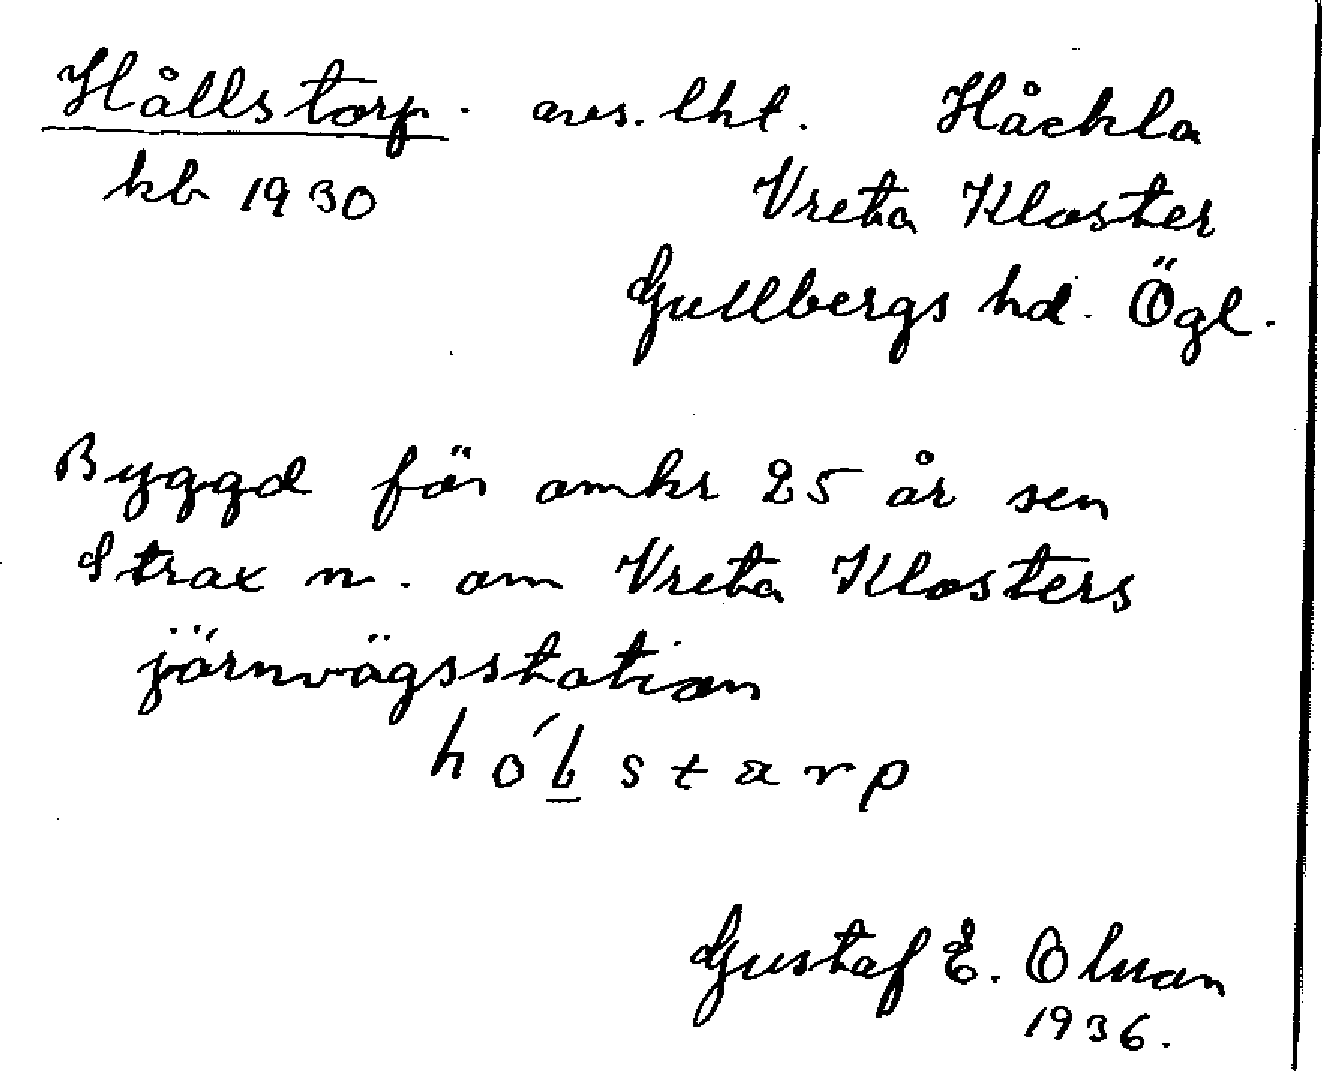 Hållstorp. avs. lht. Håckla
kb 1930 Vreta Kloster
Gullbergs hd. Ögl.
Byggd för omkr 25 år sen
Strax n. om Vreta Klosters
järnvägsstation
hólstarp
Gustaf E. Olsson
1936.